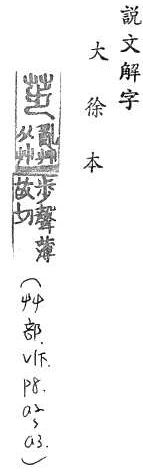 說文解字
大徐本
荹 亂艸
从艸
步聲薄
故切
(艸部.V1下.P8.a2~a3.)